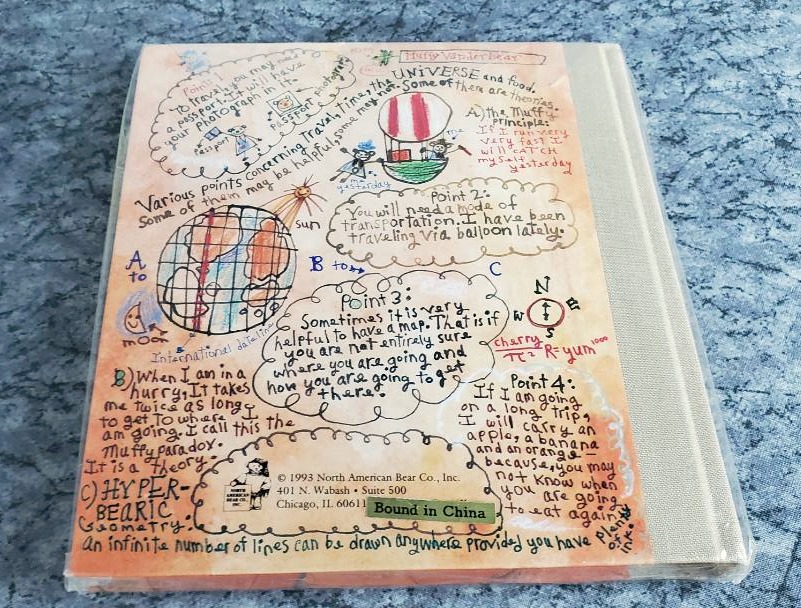 Muffy Vanderbear
Point 1
To travel, you may need
a passport. It will have
your photograph in it.
passport
passport photograph
Various points concerning travel, time, the UNIVERSE and food.
Some of them may be helpful, some may not. Some of them are theories.
A) the Muffy
principle:
If I run very
very fast I
will CATCH
myself
yesterday
me
me
yesterday
sun
Point 2:
You will need a mode of
transportation. I have been
traveling via balloon lately.
A
to
B to
C
moon
International dateline
Point 3:
Sometimes it is very
helpful to have a map. That is if
you are not entirely sure
where you are going and
how you are going to get
there.
N
W
E
S
cherry
πc² R=yum1000
B) When I am in a
hurry, It takes
me twice as long
to get To where I
am going. I call this the
Muffy paradox.
It is a theory.
Point 4:
If I am going
on a long trip,
I will carry an
apple, a banana
and an orange
because, you may
not know when
you are going
to eat again
NORTH
AMERICAN
BEAR CO.,
INC.
© 1993 North American Bear Co., Inc.
401 N. Wabash • Suite 500
Chicago, IL 60611
Bound in China
C) HYPER-
BEARIC
Geometry:
an infinite number of lines can be drawn anywhere provided you have
plenty
of
ink.